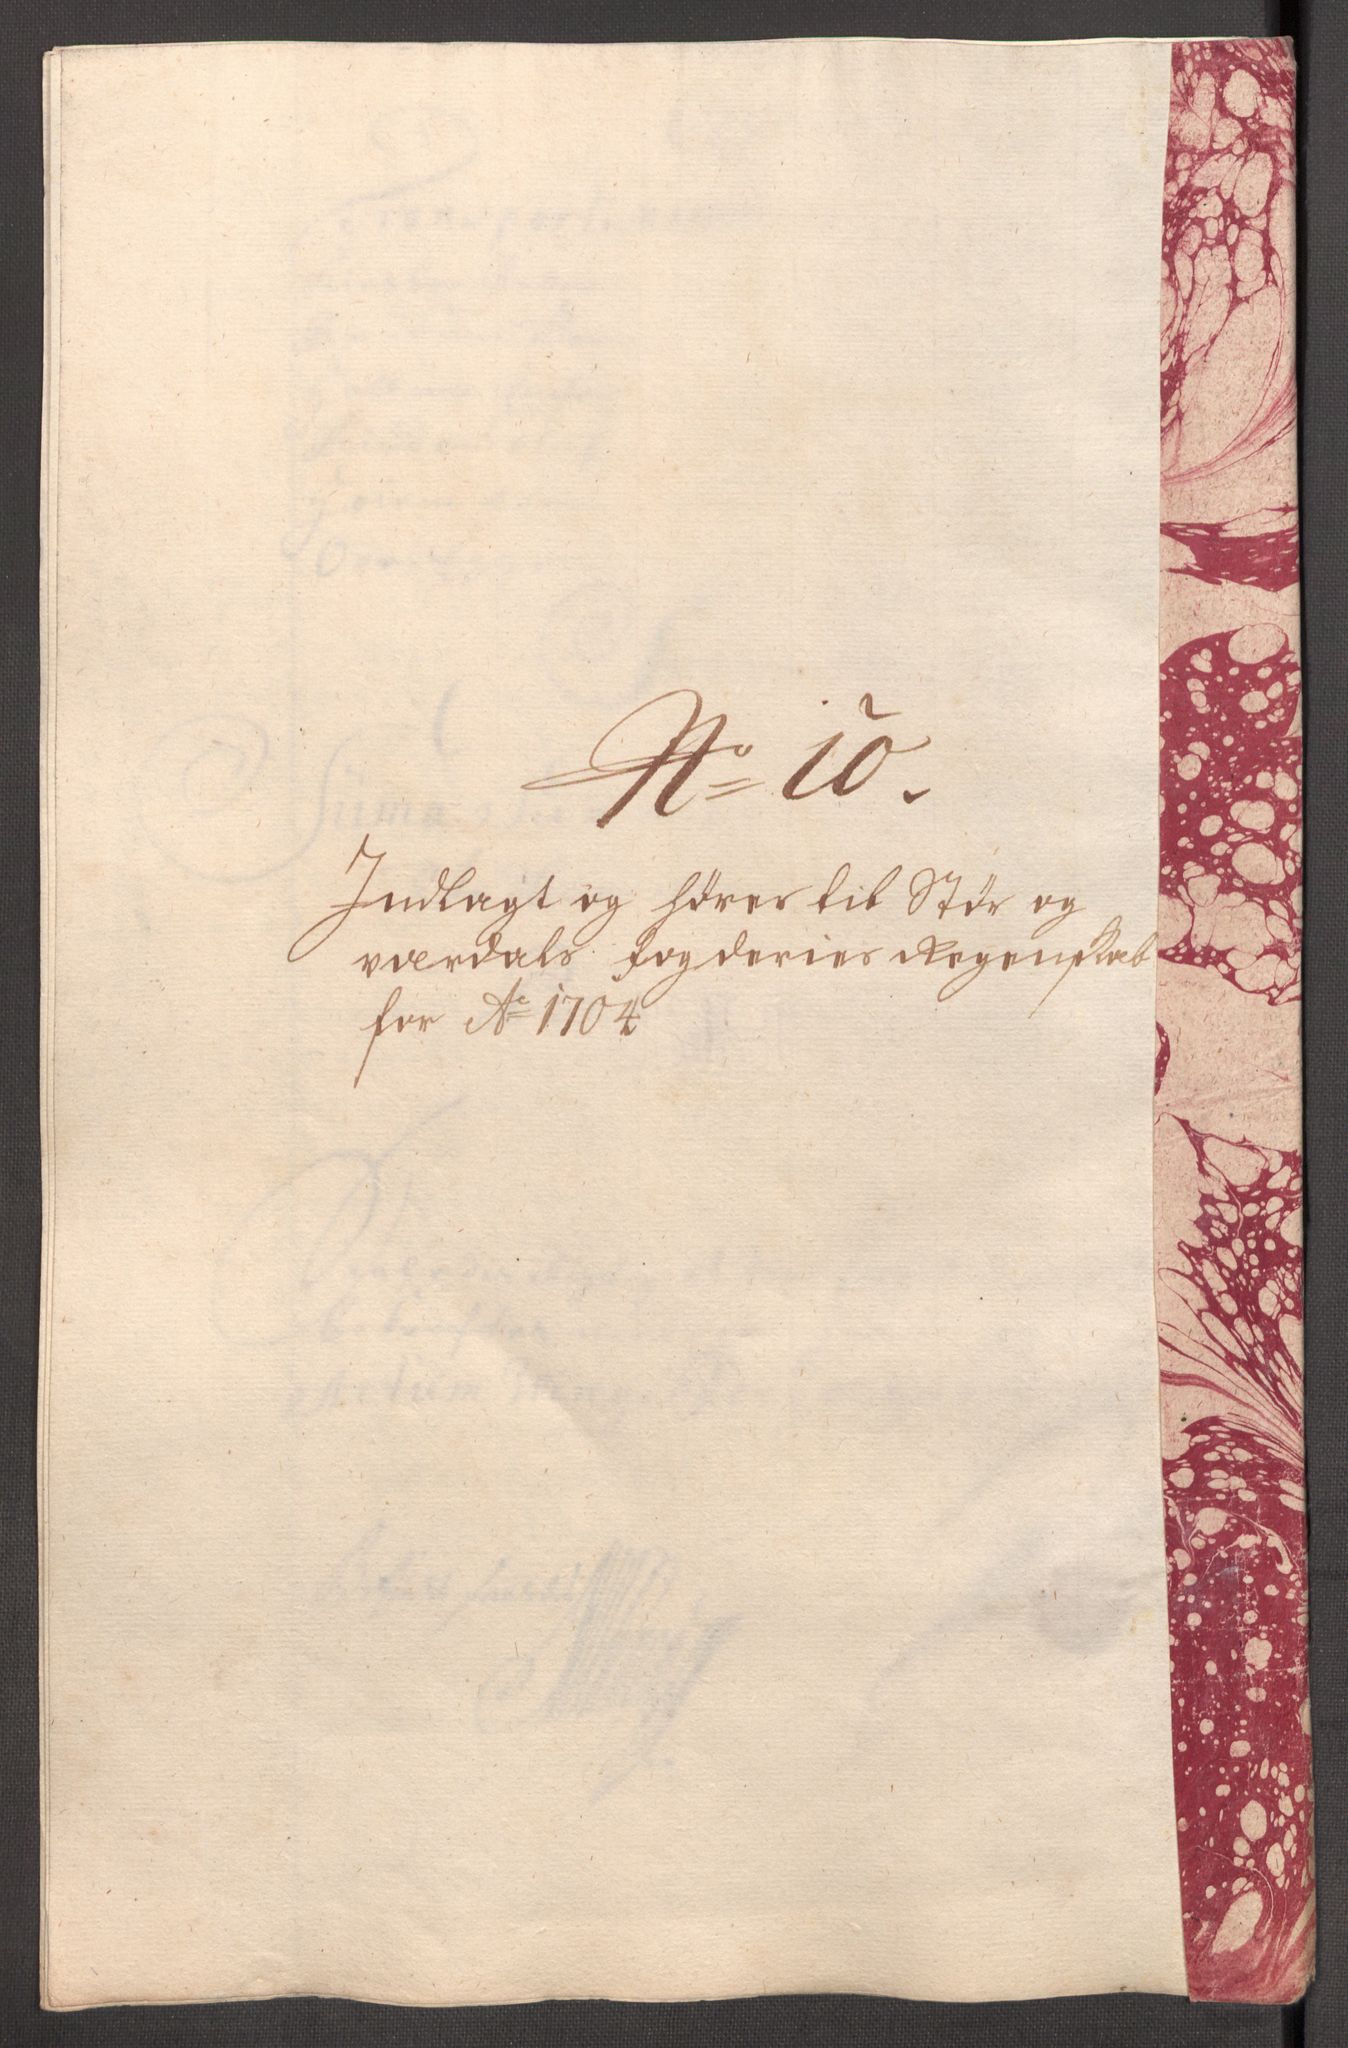 No 10.
Indlagt og hører til Stør og
værdals fogderies Regenskab
for Ao 1704